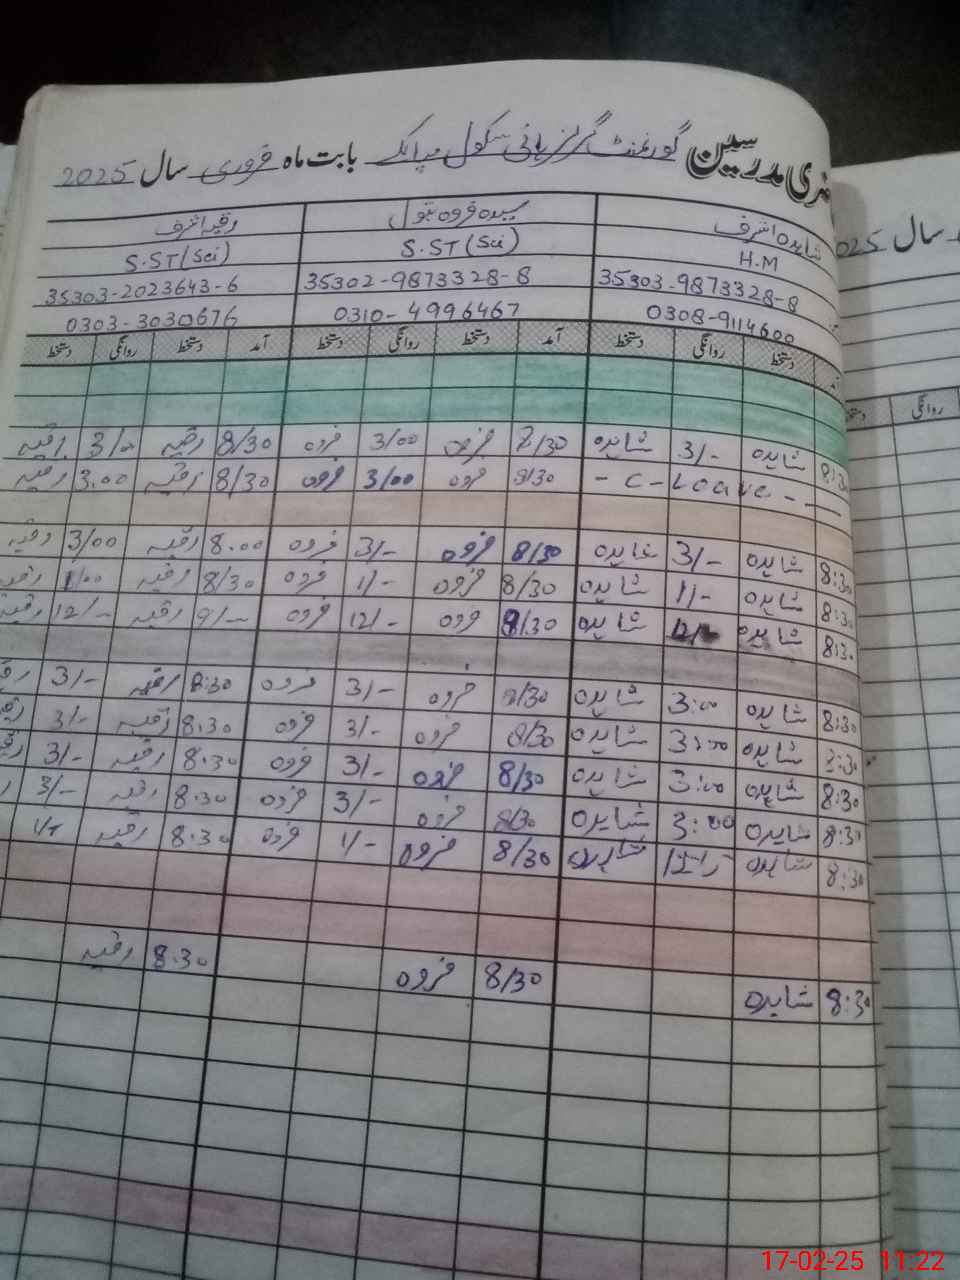 ضری مدرسین گورنمنٹ گرلز ہائی سکول بابت ماہ فروری سال 2025
شاہدہ اشرف سیدہ فروہ بتول رقیہ اشرف
H.M S.ST (Sci) S.ST (Sci)
35303-9873328-8 35302-9873328-8 35303-2023643-6
0308-9114600 0310-4996467 0303-3030676
آمد دستخط روانگی دستخط آمد دستخط روانگی دستخط آمد دستخط روانگی دستخط
8:30 شاہدہ 3/- شاہدہ 8/30 فروہ 3/00 فروہ 8/30 رقیہ 3/00 رقیہ
- C - Leave - 8/30 فروہ 3/00 فروہ 8/30 رقیہ 3:00 رقیہ
8:30 شاہدہ 3/- شاہدہ 8/30 فروہ 3/- فروہ 8:00 رقیہ 3/00 رقیہ
8:30 شاہدہ 1/- شاہدہ 8/30 فروہ 1/- فروہ 8/30 رقیہ 1/00 رقیہ
8:30 شاہدہ 12/- شاہدہ 8/30 فروہ 12/- فروہ 9/- رقیہ 12/- رقیہ
8:30 شاہدہ 3:00 شاہدہ 8/30 فروہ 3/- فروہ 8:30 رقیہ 3/-
8:30 شاہدہ 3:00 شاہدہ 8/30 فروہ 3/- فروہ 8:30 رقیہ 3/-
8:30 شاہدہ 3:00 شاہدہ 8/30 فروہ 3/- فروہ 8:30 رقیہ 3/-
8:30 شاہدہ 3:00 شاہدہ 8/30 فروہ 3/- فروہ 8:30 رقیہ 3/-
8:30 شاہدہ شاہدہ 8/30 فروہ 1/- فروہ 8:30 رقیہ
8:30 شاہدہ 8/30 فروہ 8:30 رقیہ
سال 2025
روانگی
17-02-25 11:22